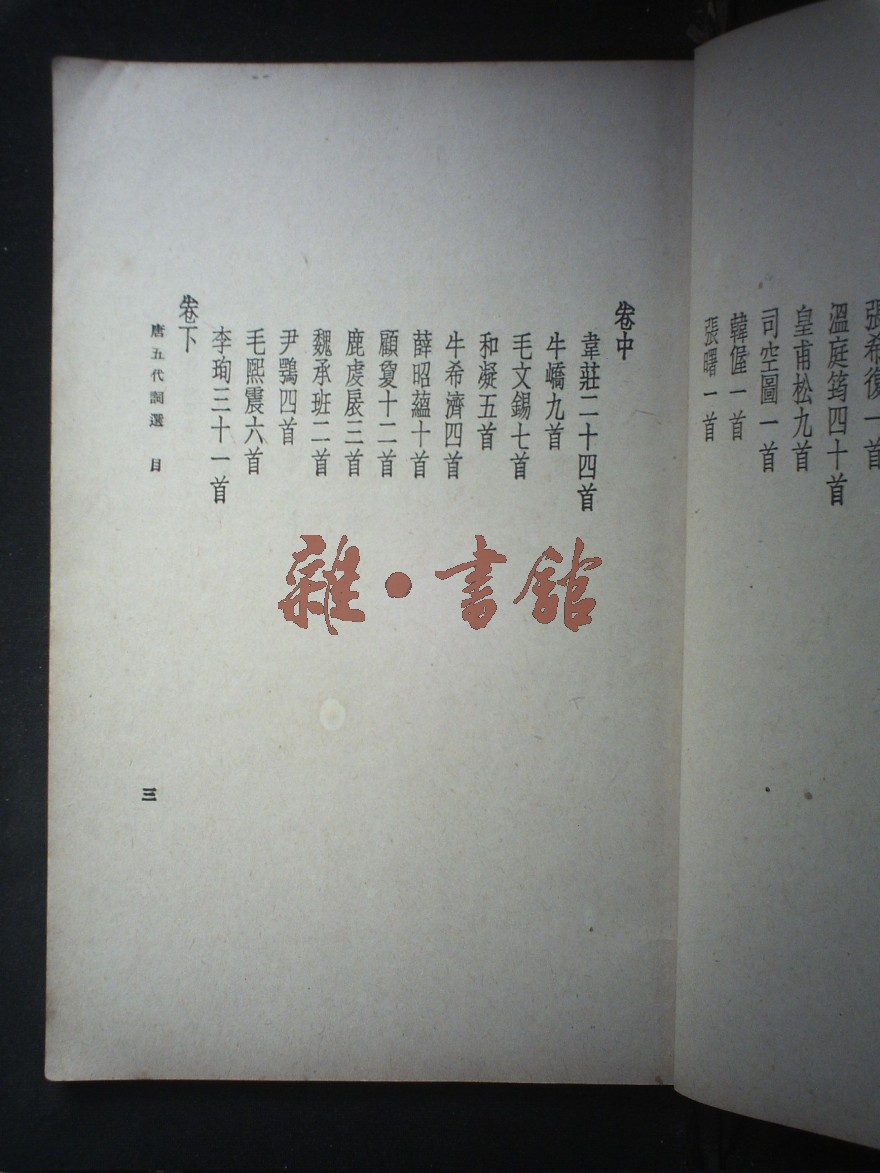 張希復一首
溫庭筠四十首
皇甫松九首
司空圖一首
韓偓一首
張曙一首
卷中
韋莊二十四首
牛嶠九首
毛文錫七首
和凝五首
牛希濟四首
薛昭蘊十首
顧敻十二首
鹿虔扆三首
魏承班二首
尹鶚四首
毛熙震六首
李珣三十一首
卷下
唐五代詞選 目
三
雜·書館